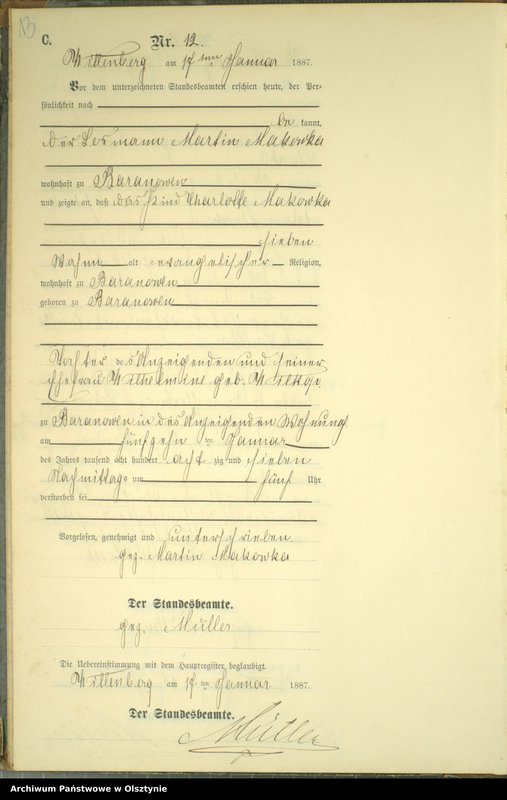 13
C.
Nr. 12.
Wittenberg am 17ten Januar 1887.
Vor dem unterzeichneten Standesbeamten erschien heute, der Per-
sönlichkeit nach
be kannt,
der Losmann Martin Makowka
wohnhaft zu Baranowen
und zeigte an, daß das Kind Charlotte Makowka
sieben
alt evangelischer Religion,
wohnhaft zu Baranowen
geboren zu Baranowen
Tochter des Anzeigenden und seiner
Ehefrau Wilhelmine geb.
zu Baranowen in des Anzeigenden Wohnung
am fünfzehn ten Januar
des Jahres tausend acht hundert acht zig und sieben
Nachmittags um fünf Uhr
verstorben sei
Vorgelesen, genehmigt und unterschrieben
gez. Martin Makowka
Der Standesbeamte.
gez. Müller
Die Uebereinstimmung mit dem Hauptregister, beglaubigt.
Wittenberg am 17ten Januar 1887.
Der Standesbeamte.
Müller
Archiwum Państwowe w Olsztynie